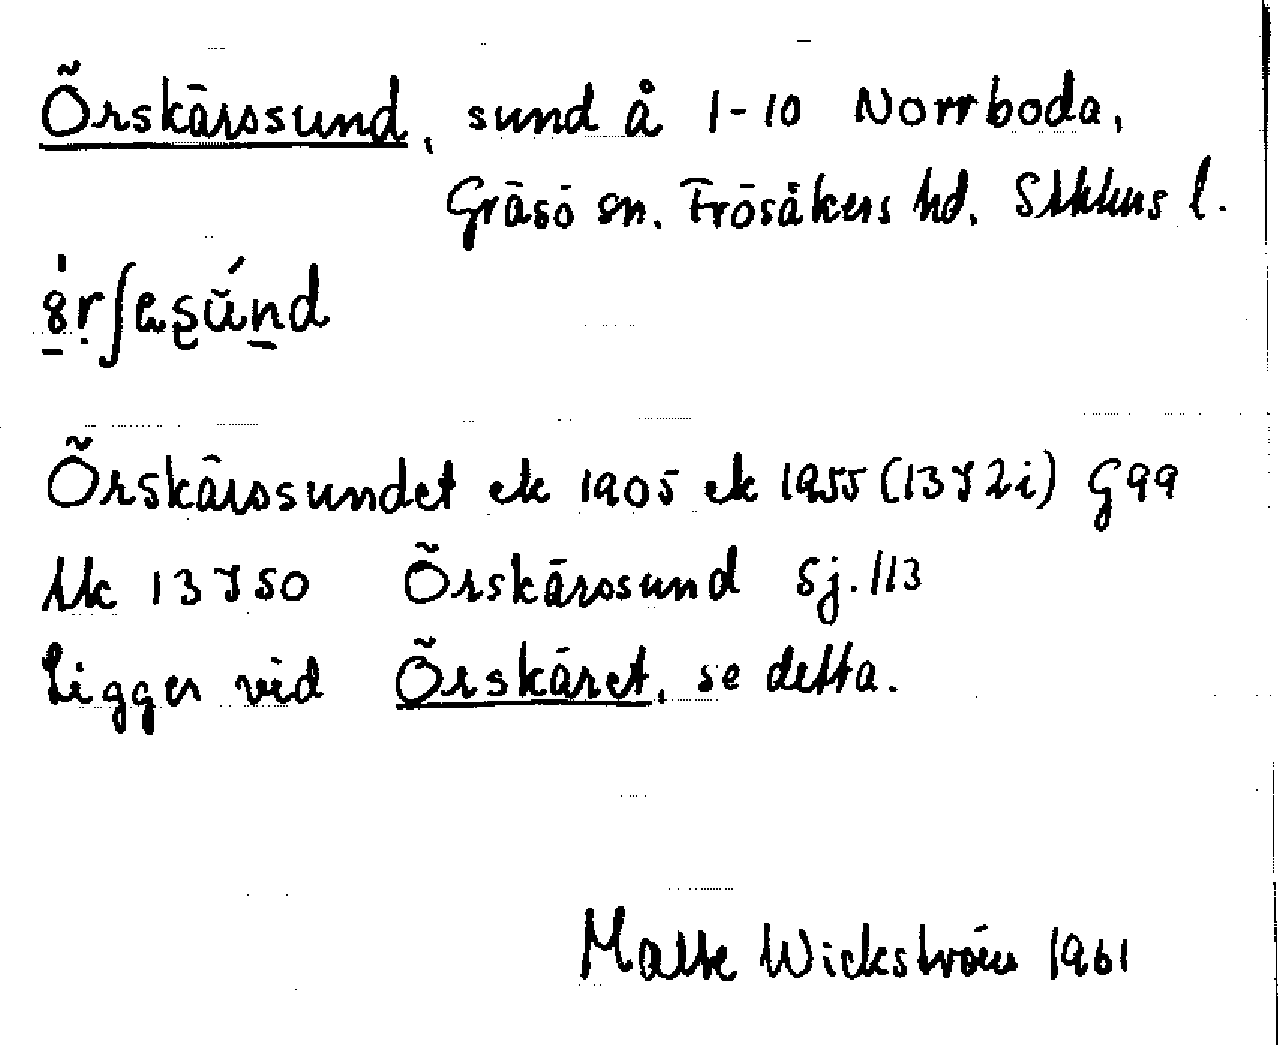 Örskärssund, sund å 1-10 Norrboda,
Gräsö sn. Frösåkers hd. Sthlms l.
Örskärssundet ek 1905 ek 1955 (13I2i) G99
13I50 Örskärssund Sj. 113
Ligger vid Örskäret, se detta.
Malte Wickström 1961